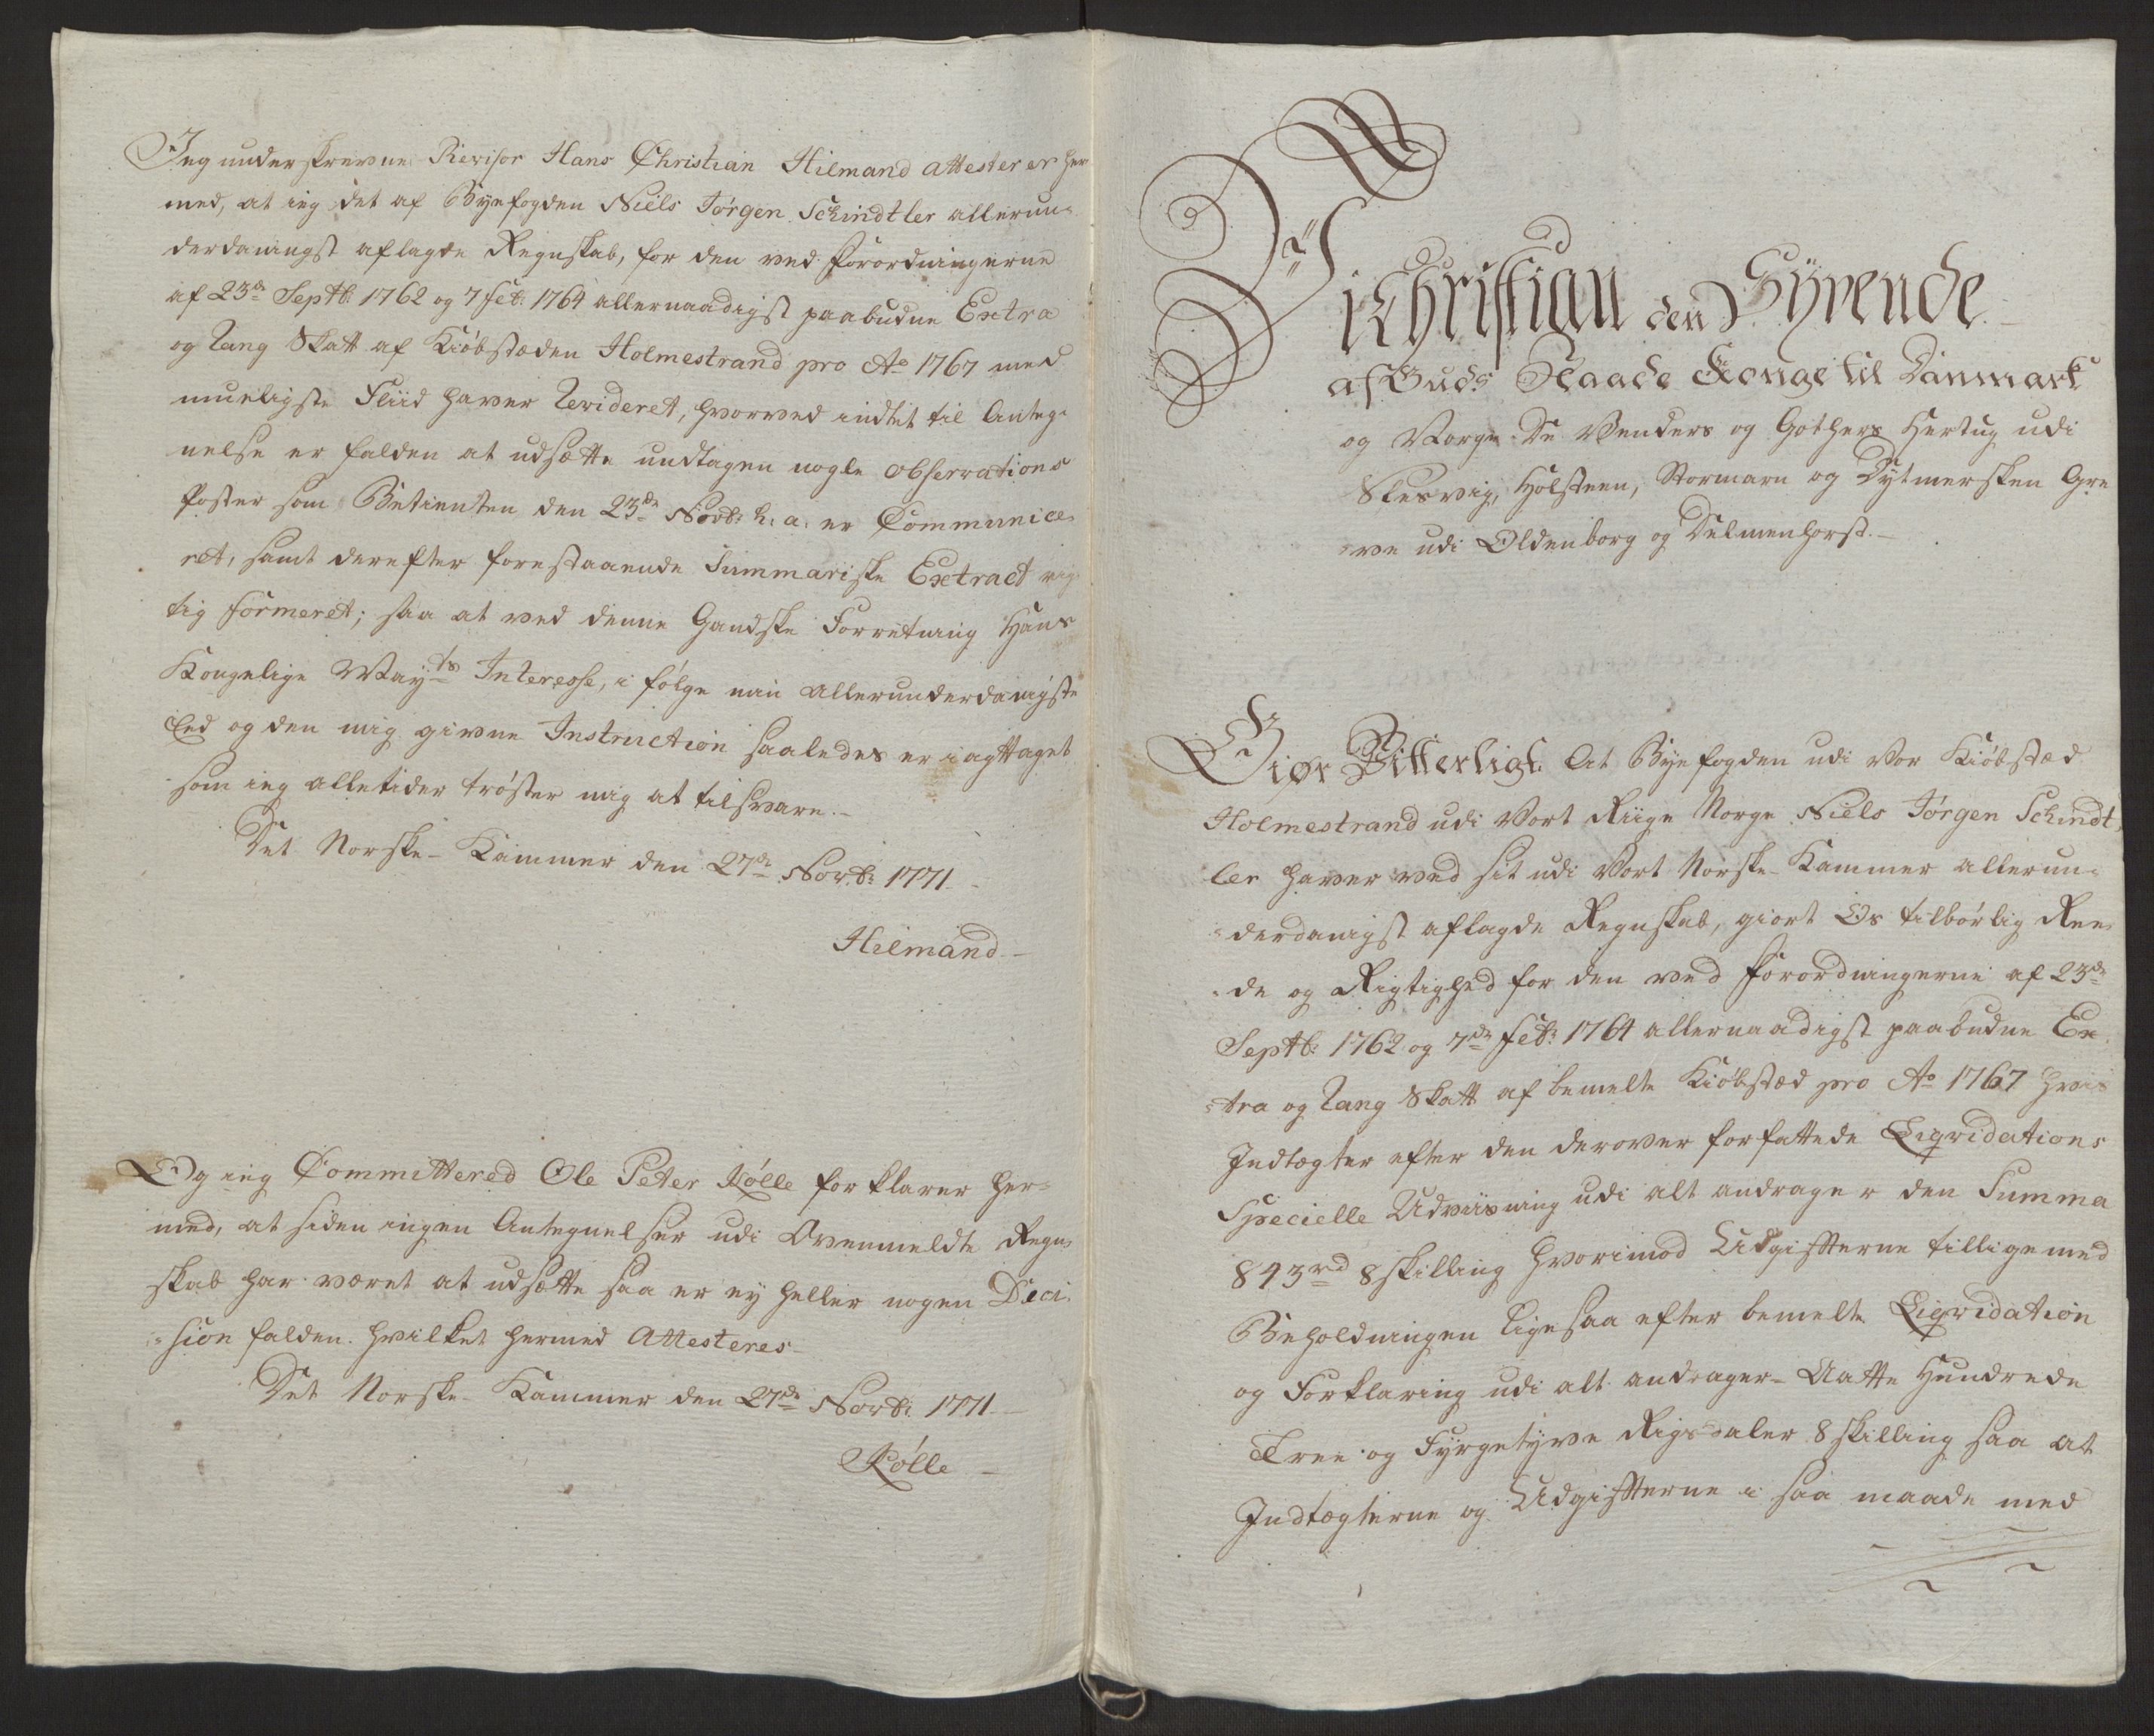 Jeg underskrevne Revisor Hans Christian Hilmand attesterer her
med, at ieg det af Byefogden Niels Jørgen Schindtler allerun=
derdanigst aflagde Regnskab, for den ved Forordningerne
af 23de Septb: 1762 og 7 Feb: 1764 allernaadigst paabudne Extra
og Rang Skatt af Kiøbstæden Holmestrand pro Ao 1767 med
mueligste Fliid haver Revideret, hvorved indtet til Anteg=
nelse er falden at udsætte undtagen nogle observations
Poster som Betienten den 23de Novb: h: a: er Communice=
ret, samt derefter forestaaende Summariske Extract rig=
tig formeret; saa at ved denne Gandske Forretning Hans
Kongelige Mayts Interesse, i følge min allerunderdanigste
Eed og den mig givne Instruction saaledes er iagttaget
som ieg alletider trøster mig at tilsvare.
Det Norske Kammer den 27de Novb: 1771.
Hilmand
Og ieg Committered Ole Peter Kølle forklarer her=
med, at siden ingen Antegnelser udi Ovenmeldte Regn=
skab har været at udsætte saa er ey heller nogen Deci=
=sion falden. hvilket hermed Attesteres
Det Norske Kammer den 27de Novb: 1771.
Kølle
Vi Christian den Syvende
af Guds Naade Konge til Danmark
og Norge De Venders og Gothers Hertug udi
Slesvig, Holsteen, Stormarn og Dytmersken Gre
=ve udi Oldenborg og Delmenhorst.
Giør Vitterligt At Byefogden udi Vor Kiøbstæd
Holmestrand udi Vort Riige Norge Niels Jørgen Schindt=
ler haver ved sit udi Vort Norske Kammer allerun=
=derdanigst aflagde Regnskab, giort Os tilbørlig Ree=
=de og Rigtighed for den ved Forordningerne af 23de
Septb: 1762 og 7de Feb: 1764 allernaadigst paabudne Ex=
=tra og Rang Skatt af bemelte Kiøbstæd pro Ao 1767 hvis
Indtægter efter den derover forfattede Liqvidations
Specielle Udviisning udi alt andrager den Summa
843rd 8 skilling hvorimod Udgifterne tilligemed
Beholdningen ligesaa efter bemelte Liqvidation
og Forklaring udi alt andrager Aatte Hundrede
Tree og Fyrgetyve Rigsdaler 8 skilling saa at
Indtægterne og Udgifterne i saa maade med